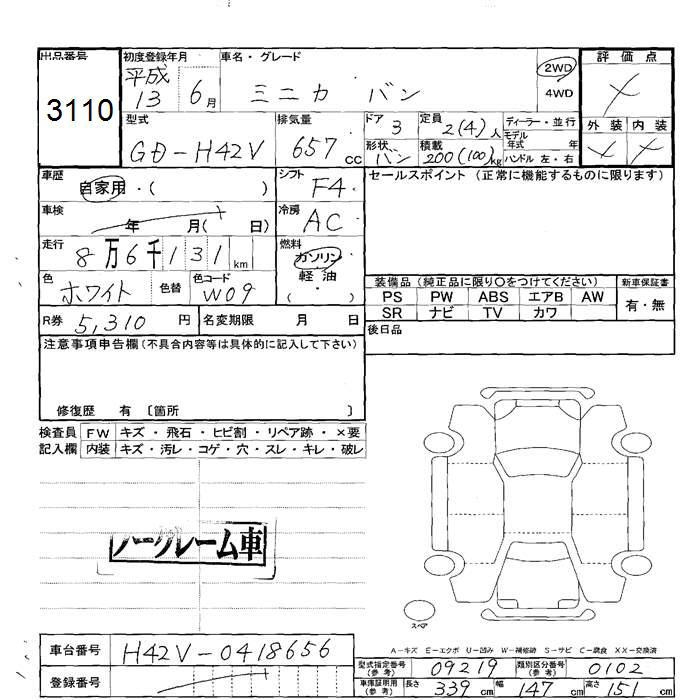 出品番号 初度登録年月 車名・グレード 評価点
3110 平成13 6月 ミニカ バン 2WD 4WD
型式 排気量 ドア 3 定員 2(4)人 ディーラー・並行 外装 内装
GD-H42V 657cc 形状 バン 積載 200(100)kg モデル年式 年 ハンドル 左・右
車歴 自家用・( ) シフト F4 セールスポイント (正常に機能するものに限ります)
車検 年 月( 日) 冷房 AC
走行 8万6千131km 燃料 ガソリン
軽・油
( )
色 ホワイト 色替 色コード W09
装備品 (純正品に限り〇をつけてください) 新車保証書
PS PW ABS エアB AW 有・無
SR ナビ TV カワ
R券 5,310円 名変期限 月 日 後日品
注意事項申告欄(不具合内容等は具体的に記入して下さい)
修復歴 有 〔箇所 〕
検査員 FW キズ・飛石・ヒビ割・リペア跡・×要
記入欄 内装 キズ・汚レ・コゲ・穴・スレ・キレ・破レ
ノークレーム車
スペア
A-キズ E-エクボ U-凹み W-補修跡 S-サビ C-腐食 XX-交換済
車台番号 H42V-0418656
型式指定番号(参考) 09219 類別区分番号(参考) 0102
登録番号
車庫証明用(参考) 長さ 339cm 幅 147cm 高さ 151cm